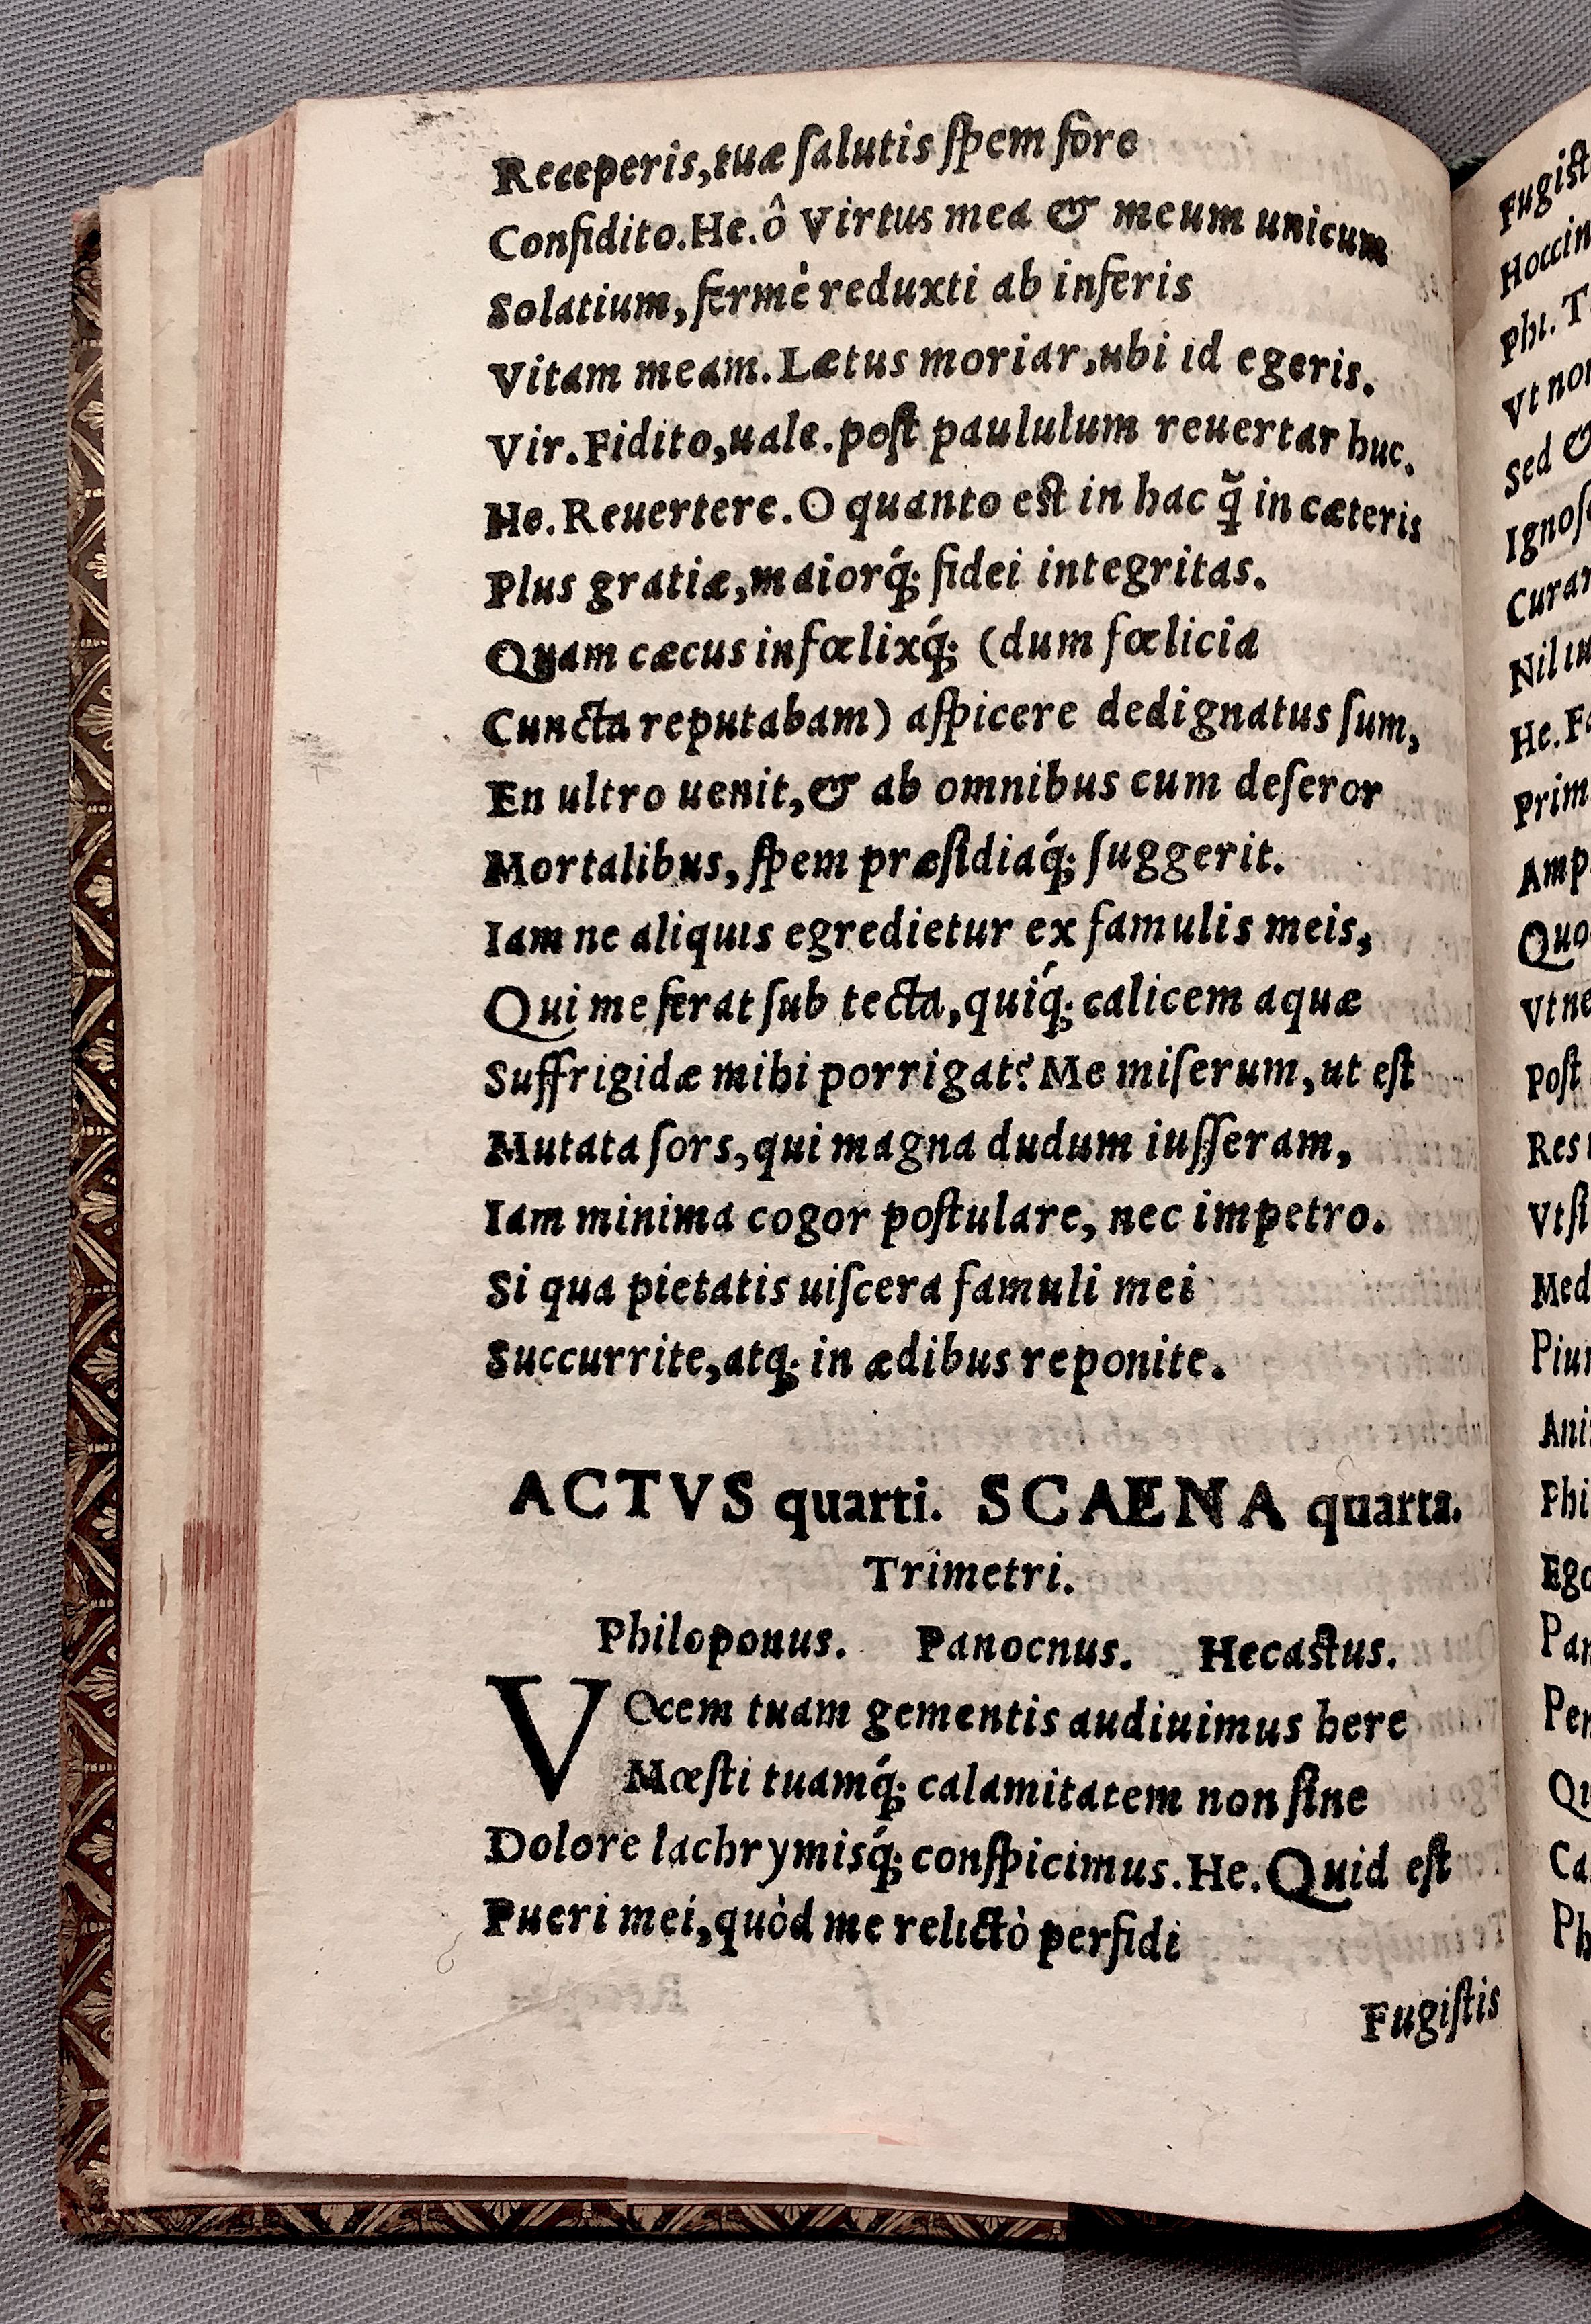 Receperis, tuæ ſalutis ſpem fore
Confidito. He. ô Virtus mea & meum unicum
Solatium, fermè reduxti ab inferis
Vitam meam. Lætus moriar, ubi id egeris.
Vir. Fidito, uale. poſt paululum reuertar huc.
He. Reuertere. O quanto est in hac q̃ in cæteris
Plus gratiæ, maiorq́; fidei integritas.
Quam cæcus infœlixq́; (dum fœlicia
Cuncta reputabam) aſpicere dedignatus ſum,
En ultro uenit, & ab omnibus cum deſeror
Mortalibus, ſpem præſidiaq́; ſuggerit.
Iam ne aliquis egredietur ex famulis meis,
Qui me ferat ſub tecta, quiq́; calicem aquæ
Suffrigidæ mihi porrigat? Me miſerum, ut eſt
Mutata ſors, qui magna dudum iuſſeram,
Iam minima cogor poſtulare, nec impetro.
Si qua pietatis uiſcera famuli mei
Succurrite, atq; in ædibus reponite.
ACTVS quarti. SCAENA quarta.
Trimetri.
Philoponus. Panocnus. Hecastus.
VOcem tuam gementis audiuimus here
Mœſti tuamq́; calamitatem non ſine
Dolore lachrymisq́; conſpicimus. He. Quid eſt
Pueri mei, quòd me relictò perfidi
Fugiſtis
Hoccin
Phi. T
Vt non
Sed &
Ignoſ
Curar
Nil
He. Fa
Prim
Amp
Quo
Vt ne
Poſt
Res
Vt ſi
Med
Piu
Ani
Phi
Ego
Par
Per
Ca
Ph